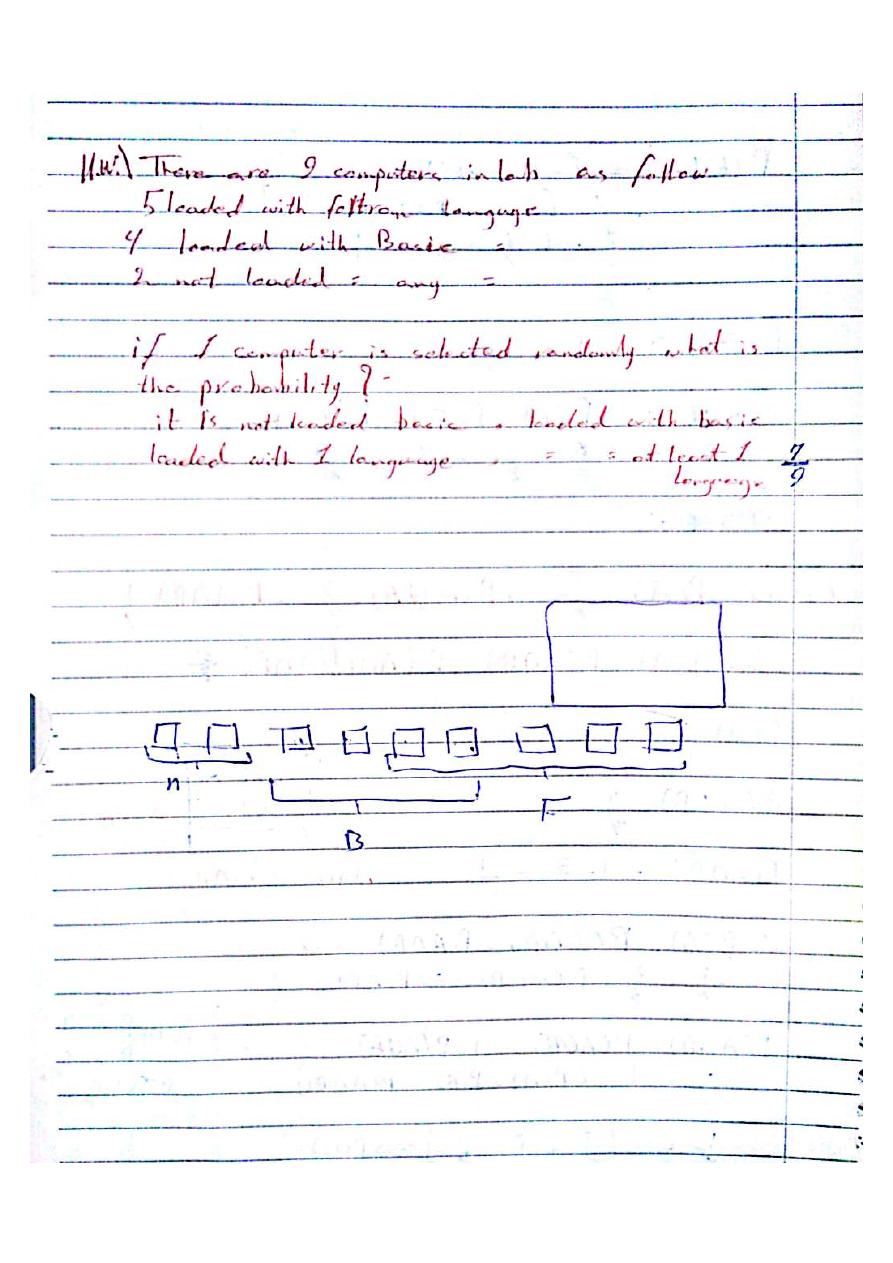 H.W.) There are 9 computers in lab as follow
5 loaded with foltran language
4 loaded with Basic =
2 not loaded = any =
if 1 computer is selected randomly what is
the probability ?
it is not loaded basic . loaded with basic
loaded with 1 language . = = at least 1 7/9
language
n
B
F